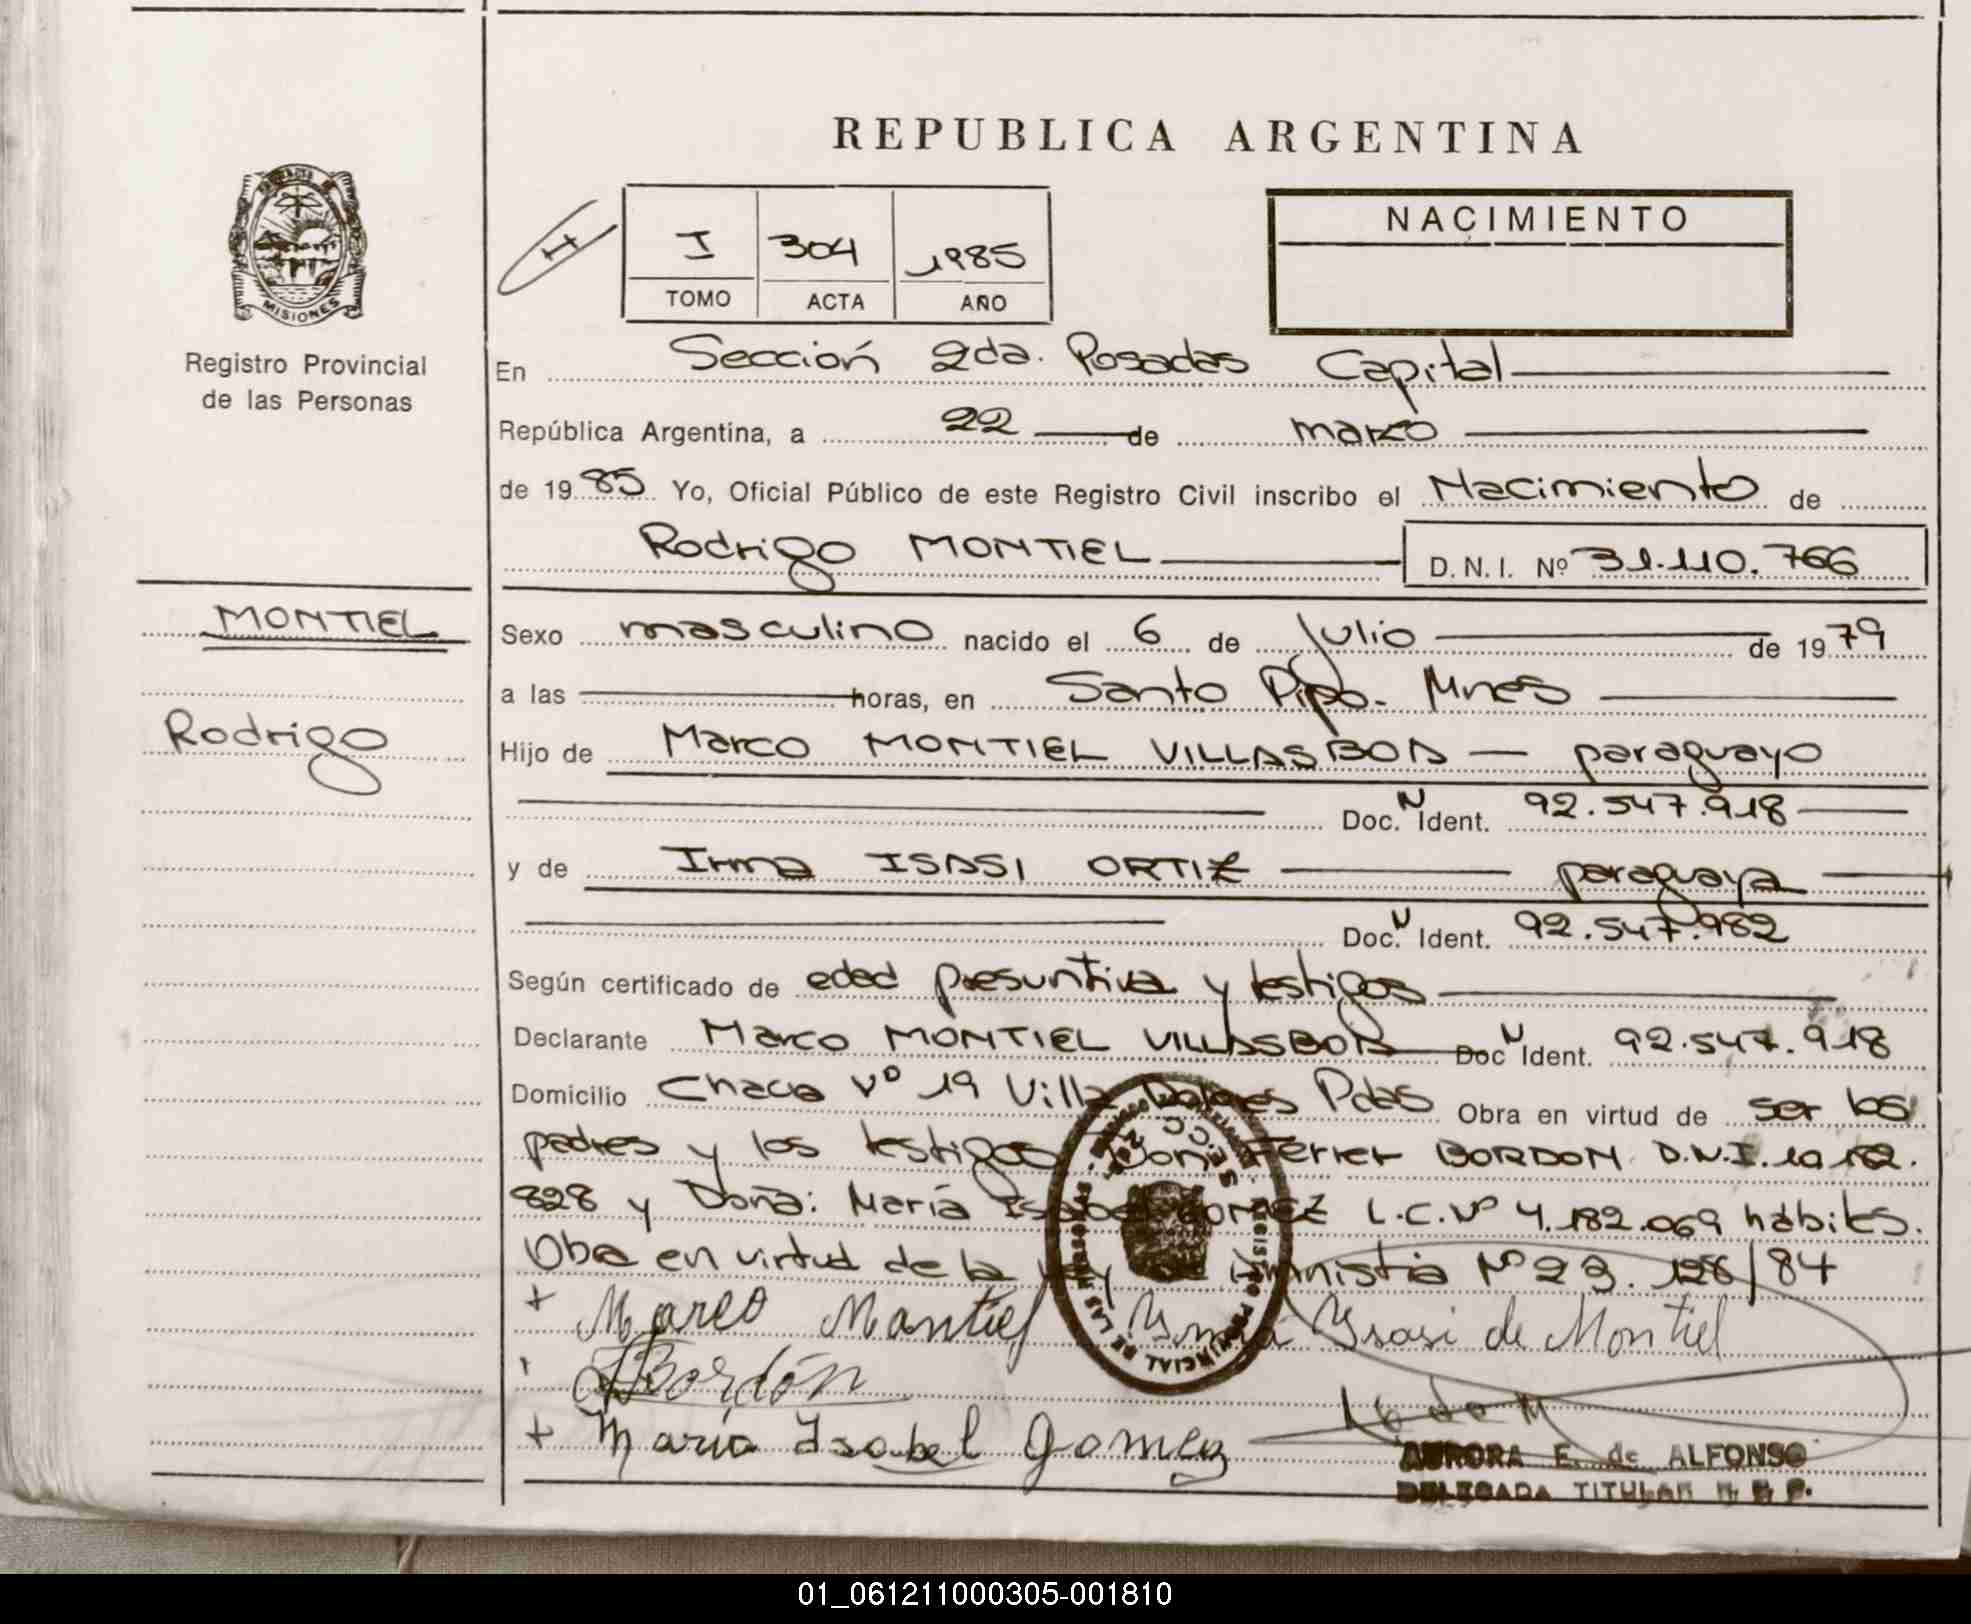 REPUBLICA ARGENTINA
MISIONES
Registro Provincial
de las Personas
I
I 304 1985
TOMO ACTA AÑO
NACIMIENTO
En Sección 2da. Posadas Capital
República Argentina, a 22 de marzo
de 1985 Yo, Oficial Público de este Registro Civil inscribo el Nacimiento de
Rodrigo MONTIEL D.N.I. Nº 31.110.766
MONTIEL
Rodrigo
Sexo masculino nacido el 6 de Julio de 1979
a las horas, en Santo Pipo. Mnes
Hijo de Marco MONTIEL VILLASBOA paraguayo
Doc. N Ident. 92.547.918
y de Irma ISASI ORTIZ paraguaya
Doc. N Ident. 92.547.982
Según certificado de edad presuntiva y testigos
Declarante Marco MONTIEL VILLASBOA Doc N Ident. 92.547.918
Domicilio Chaca Nº 19 Villa Dolores Pdas Obra en virtud de ser los
padres y los testigos Don: Ferrer BORDON D.N.I. 10.182.
828 y Doña: María Isabel GOMEZ L.C.Nº 4.182.069 hábiles.
Oba en virtud de la Ley de Amnistia Nº 23.126/84
+ Marco Montiel Irma Ysasi de Montiel
Bordón
+ María Isabel Gomez
AURORA E. de ALFONSO
DELEGADA TITULAR
REGISTRO PROVINCIAL DE LAS PERSONAS
01_061211000305-001810